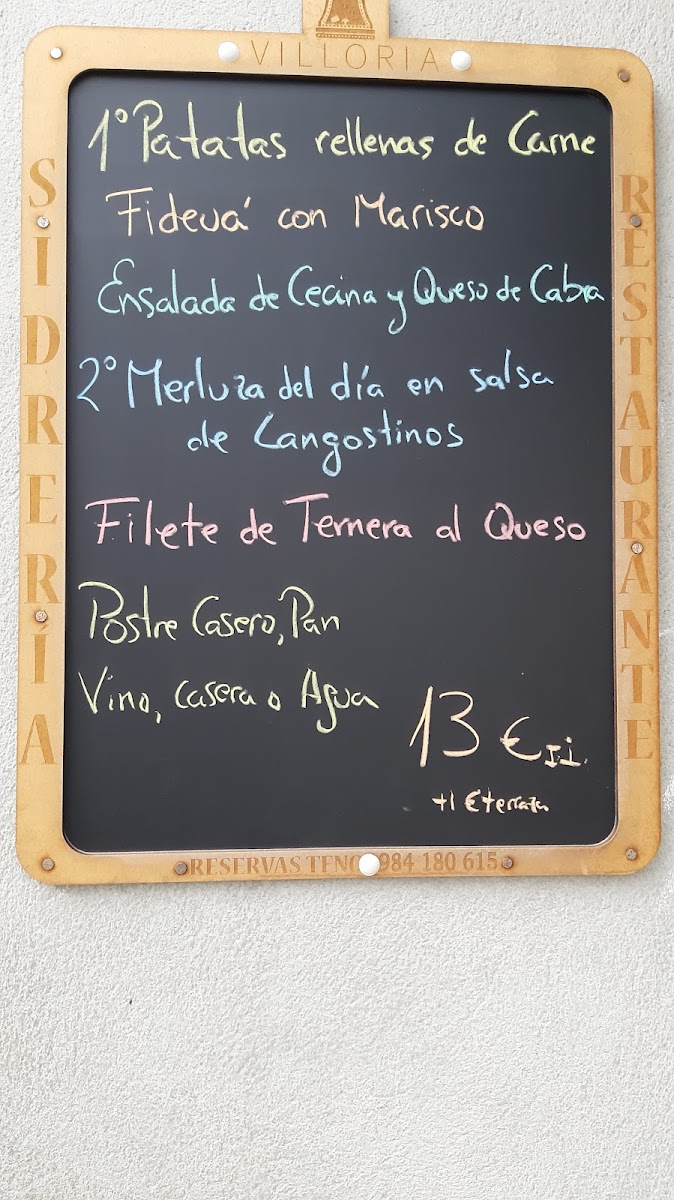 VILLORIA
SIDRERÍA
RESTAURANTE
1º Patatas rellenas de Carne
Fideuá con Marisco
Ensalada de Cecina y Queso de Cabra
2º Merluza del día en salsa
de Langostinos
Filete de Ternera al Queso
Postre Casero, Pan
Vino, Casera o Agua
13 € I.i.
+1 € terraza
RESERVAS 984 180 615